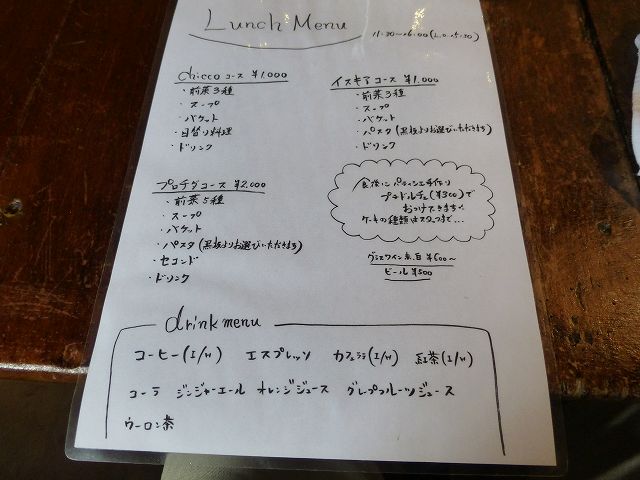 Lunch Menu
11:30~16:00(L.O.15:30)
chicco コース ¥1.000
・前菜3種
・スープ
・バケット
・日替り料理
・ドリンク
イスキアコース ¥1.000
・前菜3種
・スープ
・バケット
・パスタ(黒板よりお選びいただきます)
・ドリンク
プロチダコース ¥2.000
・前菜5種
・スープ
・バケット
・パスタ(黒板よりお選びいただきます)
・セコンド
・ドリンク
食後にパティシエ手作り
プチドルチェ(¥300)で
おつけできます♪
ケーキの種類はスタッフまで...
グラスワイン 赤.白 ¥600~
ビール ¥500
drink menu
コーヒー(I/H) エスプレッソ カフェラテ(I/H) 紅茶(I/H)
コーラ ジンジャーエール オレンジジュース グレープフルーツジュース
ウーロン茶